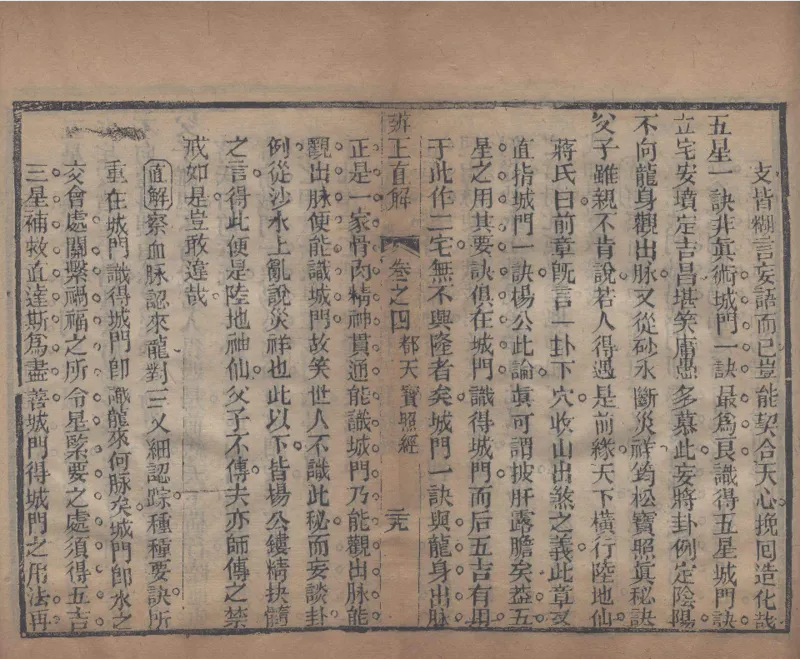 支皆糊言妄語而已豈能契合天心挽回造化哉
五星一訣非眞術城門一訣最爲良識得五星城門訣
立宅安墳定吉昌堪笑庸愚多慕此妄將卦例定陰陽
不向龍身觀出脉又從砂水斷災祥筠松寶照眞秘訣
父子雖親不肯說若人得遇是前緣天下橫行陸地仙
蔣氏曰前章旣言一卦下穴收山出煞之義此章又
直指城門一訣楊公此論眞可謂披肝露膽矣葢五
星之用其要訣俱在城門識得城門而后五吉有用
于此作二宅無不興隆者矣城門一訣與龍身出脉
辨正直解 卷之四 都天寶照經 二十九
正是一家骨肉精神貫通能識城門乃能觀出脉能
觀出脉便能識城門故笑世人不識此秘而妄談卦
例從沙水上亂說災祥也此以下皆楊公鏤精抉髓
之言得此便是陸地神仙父子不傳夫亦師傳之禁
戒如是豈敢違哉
直解察血脉認來龍對三义細認踪種種要訣所
重在城門識得城門卽識龍來何脉矣城門卽水之
交會處關繫禍福之所令星緊要之處須得五吉
三星補救直達斯爲盡善城門得城門之用法再